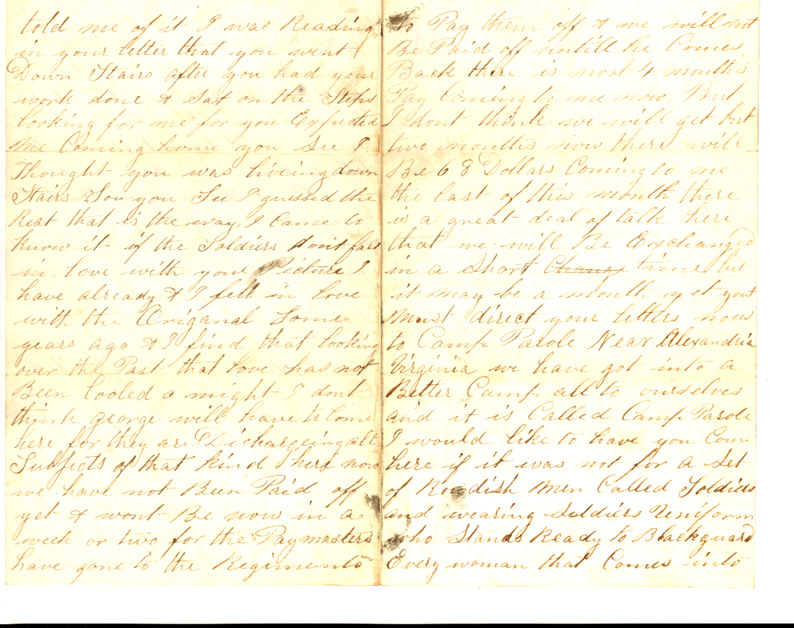 told me of it I was Reading
in your letter that you went
Down Stairs after you had your
work done & Sat on the Steps
looking for me for you Expected
me Coming home you See I
Thought you was liveing down
Stairs Sou you See I guessed the
Rest that is the way I Came to
Know it if the Soldiers dont fall
in love with your Picture I
have already & I fell in love
with the Origanal Some
years ago & I find that looking
over the Past that love has not
Been Cooled a might I dont
think george will have to Come
here for they are Dichargeing all
Subjects of that kind here now
we have not Been Paid off
yet & wont Be now in a
week or two for the Paymasters
have gone to the Regiments
to Pay them off & we will not
Be Paid off untill he Comes
Back there is most 4 months
Pay Coming to me now But
I dont think we will get but
two months now there will
Be 68 Dollars Coming to me
the last of this month there
is a great deal of talk here
that we will Be Exchanged
in a Short Change time But
it may be a month yet you
must direct your letters now
to Camp Parole Near Alexandria
Virginia we have got into a
Better Camp all to ourselves
and it is Called Camp Parole
I would like to have you Com
here if it was not for a Set
of Men Called Soldiers
and wearing Soldiers Uniform
who Stands Ready to Blackguard
Every woman that Comes into